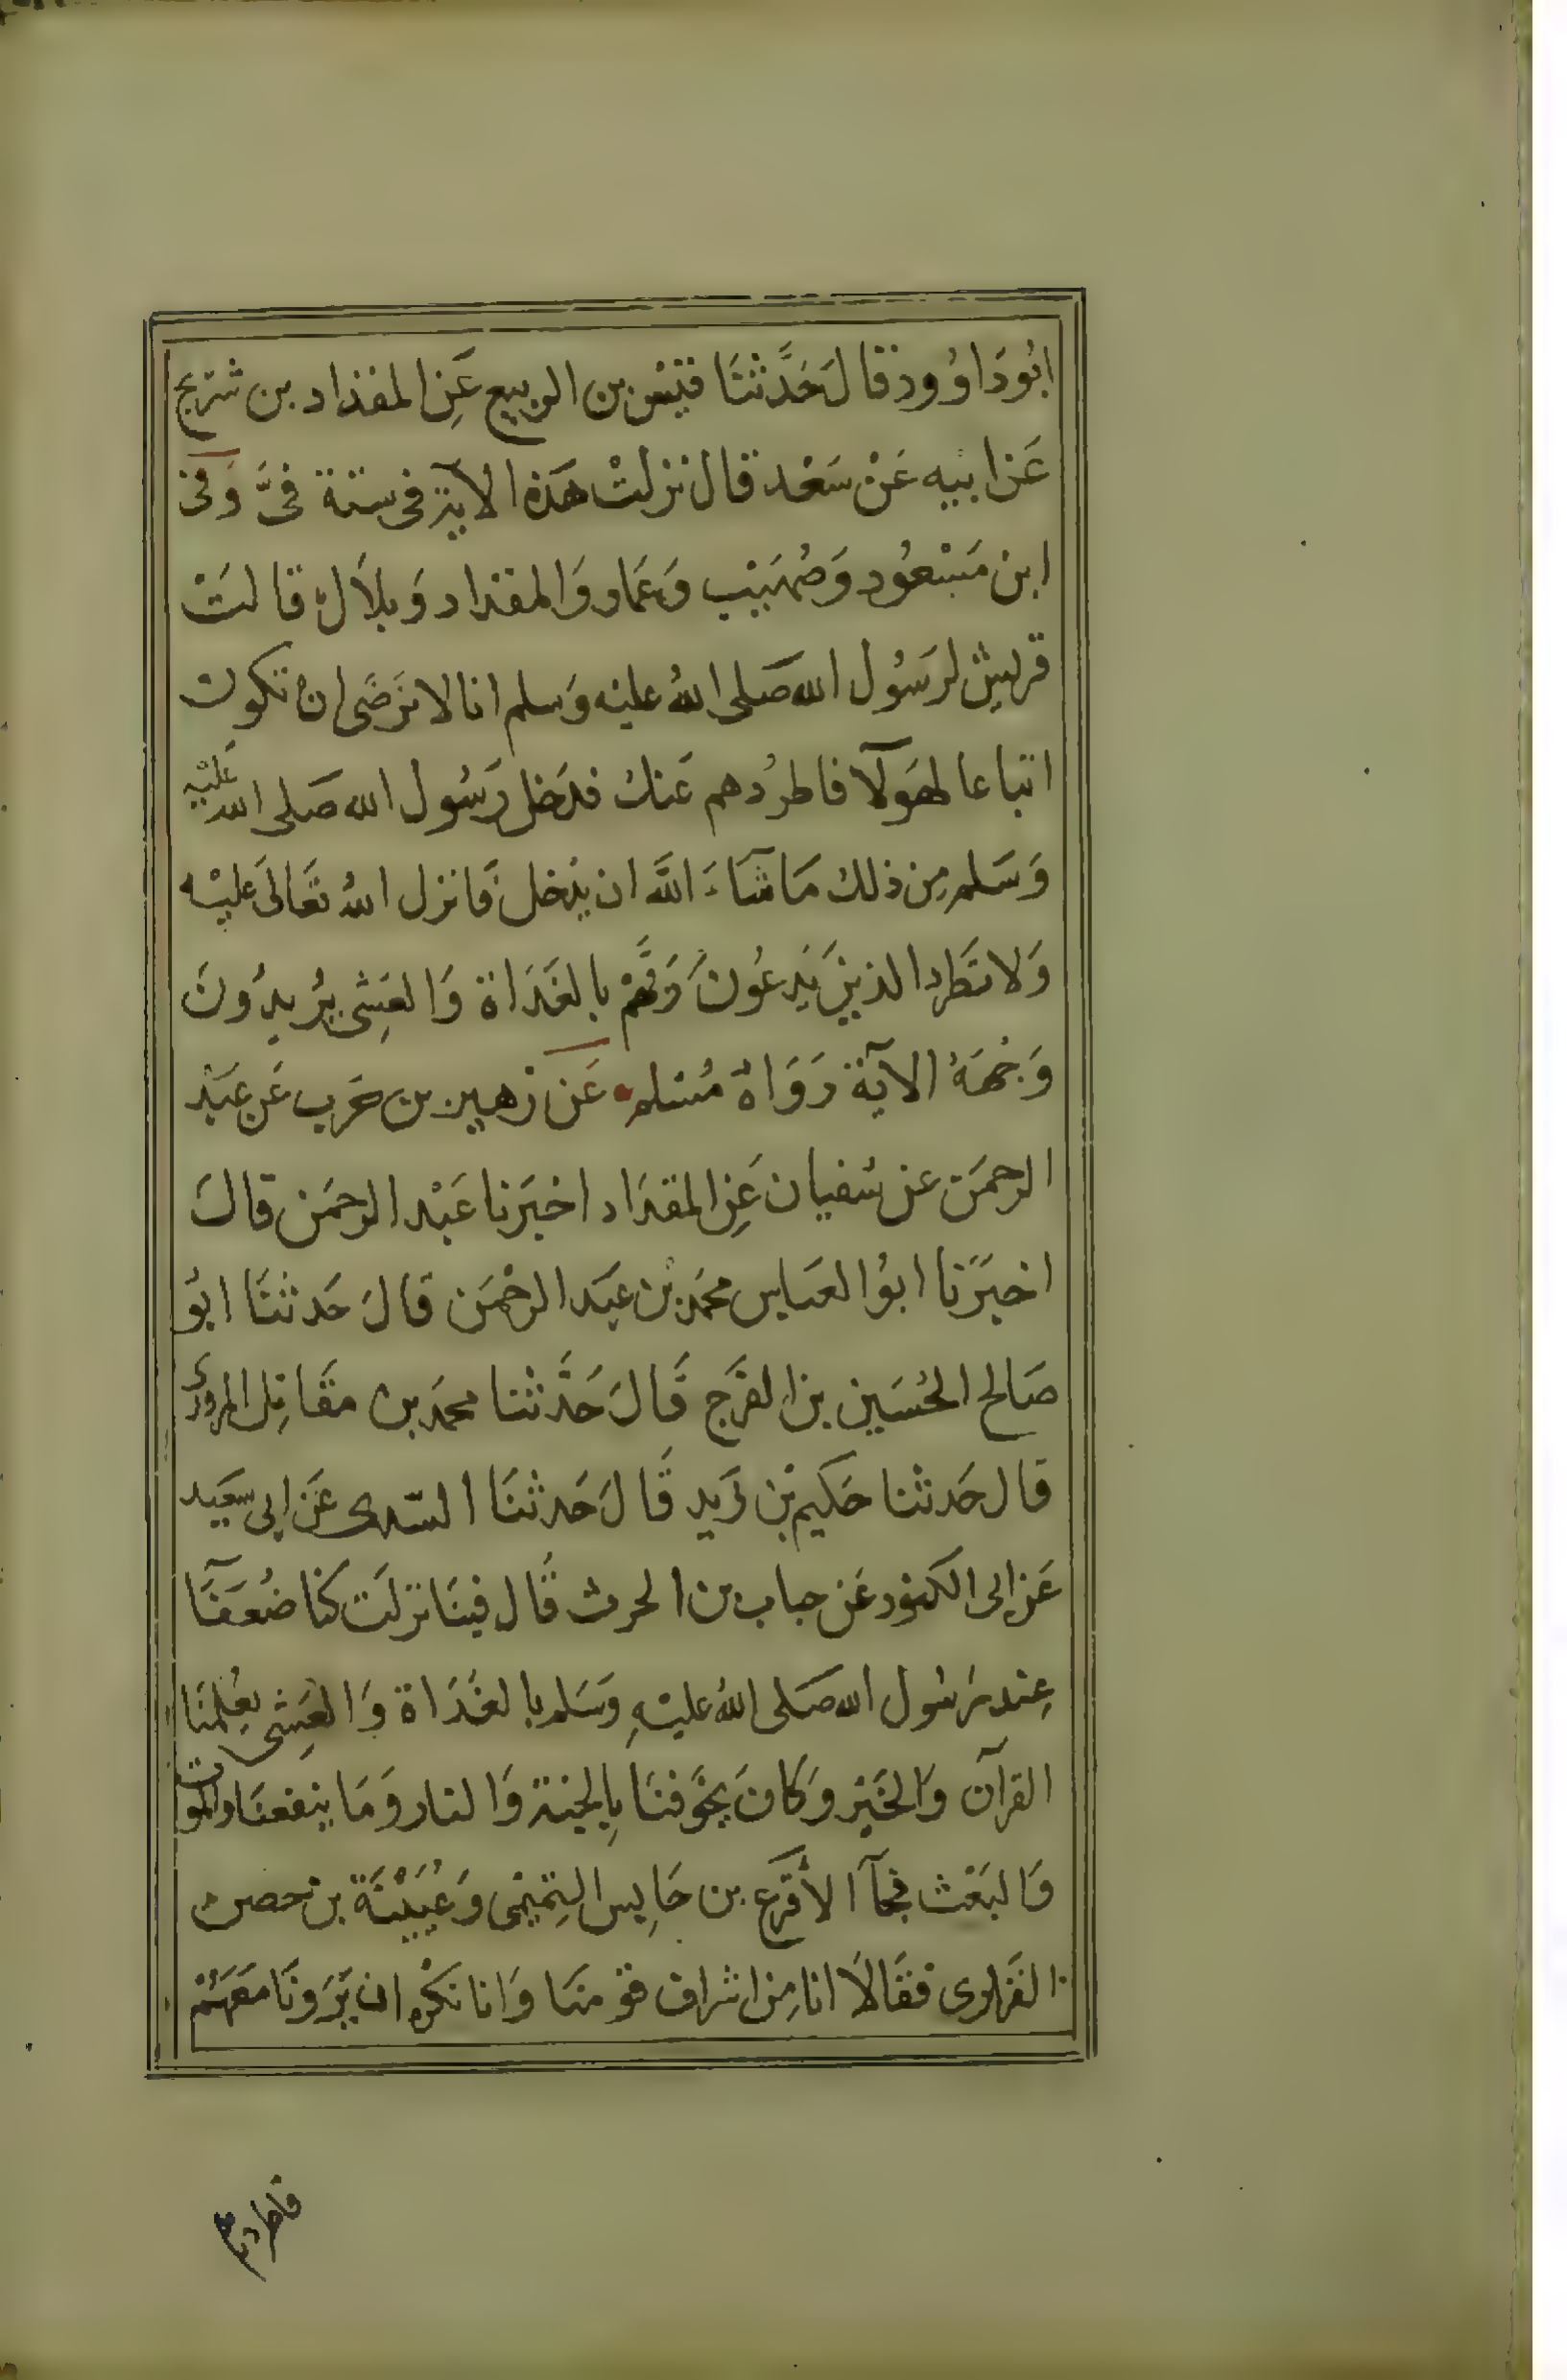 ابُودَاوُود قالَ حَدَّثنَا قيَسْ بن الربيع عَنِ المقدَاد بن شريح
عَن ابيه عَنْ سَعْد قال نزلتْ هَذه الايَة فى ستة فىَّ وَفى
ابن مَسْعُود وَصُهَيْب وَعَمار وَالمقدَاد وَبلاَل قالتْ
قريش لرَسُول الله صَلى اللهُ عليْه وَسلم انا لا نَرضَى ان تكون
اتباعا لهَولآ فاطرُدهم عَنك فدَخل رَسُول الله صَلى الله عَليْه
وَسَلم مِن ذلك مَا شآءَ اللَّه ان يَدخل فَانزل اللهُ تعَالىَ عَليْه
وَلا تَطرد الذينَ يَدعُونَ رَبَّهُمْ بالغَدَاة وَالعَشِى يُريدُونَ
وَجْهَهُ الآيَة رَوَاهُ مُسْلم عَن زهير بن حَرب عَن عَبْد
الرحمَن عَن سُفيان عَنِ المقدَاد اخبَرنا عَبْد الرحمَن قالَ
اخبَرَنا ابوُ العَباس محمَد بْن عَبَد الرحْمَن قالَ حَدثنَا ابوُ
صَالح الحُسَين بن الفَرَج قَالَ حَدَّثنا محمَد بن مقَاتِل المروزى
قال حَدثنا حَكيم بْن زَيد قَالَ حَدثنَا السّدى عَن ابى سعَيد
عَن ابى الكنود عَن حباب بن الحرث قَال فينَا نزلَت كنا ضُعَفَآ
عِند رَسُول الله صَلى اللهُ عليْهِ وَسَلم بالغَدَاة وَالعَشِى يعُلمنَا
القرآن وَالخَيْر وَكَانَ يخَوفنَا بِالجنة وَالنار وَمَا ينفعنَا والموت
وَالبَعْث فجَآ الأقرَع بن حَابِس التِميْمى وَعُيَيْنَة بن حصن
الفَزارى فقَالاَ انا مِن اشراف قوْمنَا وَانا نكَره ان يَرَونَا مَعَهُمْ
فاطردهم